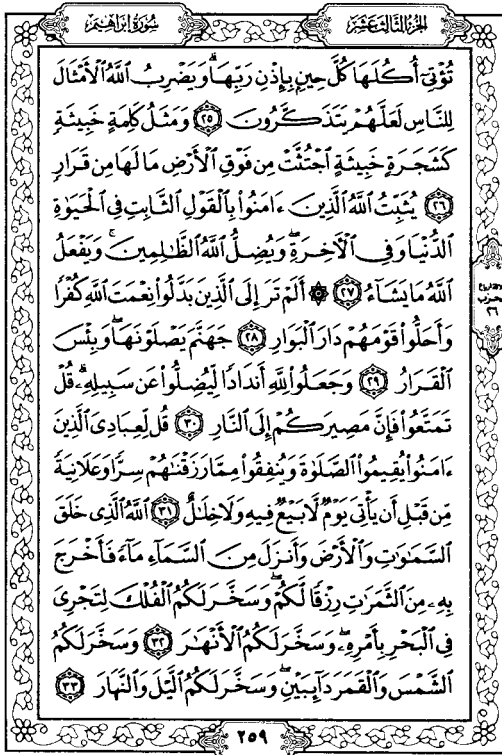 سُورَةُ إِبْرَاهِيمَ
الجُزْءُ الثَّالِثَ عَشَرَ
تُؤْتِىٓ أُكُلَهَا كُلَّ حِينٍۭ بِإِذْنِ رَبِّهَا ۗ وَيَضْرِبُ ٱللَّهُ ٱلْأَمْثَالَ
لِلنَّاسِ لَعَلَّهُمْ يَتَذَكَّرُونَ ٢٥ وَمَثَلُ كَلِمَةٍ خَبِيثَةٍ
كَشَجَرَةٍ خَبِيثَةٍ ٱجْتُثَّتْ مِن فَوْقِ ٱلْأَرْضِ مَا لَهَا مِن قَرَارٍ
٢٦ يُثَبِّتُ ٱللَّهُ ٱلَّذِينَ ءَامَنُوا۟ بِٱلْقَوْلِ ٱلثَّابِتِ فِى ٱلْحَيَوٰةِ
ٱلدُّنْيَا وَفِى ٱلْـَٔاخِرَةِ ۖ وَيُضِلُّ ٱللَّهُ ٱلظَّـٰلِمِينَ ۚ وَيَفْعَلُ
ٱللَّهُ مَا يَشَآءُ ٢٧ ۞ أَلَمْ تَرَ إِلَى ٱلَّذِينَ بَدَّلُوا۟ نِعْمَتَ ٱللَّهِ كُفْرًا
وَأَحَلُّوا۟ قَوْمَهُمْ دَارَ ٱلْبَوَارِ ٢٨ جَهَنَّمَ يَصْلَوْنَهَا ۖ وَبِئْسَ
ٱلْقَرَارُ ٢٩ وَجَعَلُوا۟ لِلَّهِ أَندَادًا لِّيُضِلُّوا۟ عَن سَبِيلِهِۦ ۗ قُلْ
تَمَتَّعُوا۟ فَإِنَّ مَصِيرَكُمْ إِلَى ٱلنَّارِ ٣٠ قُل لِّعِبَادِىَ ٱلَّذِينَ
ءَامَنُوا۟ يُقِيمُوا۟ ٱلصَّلَوٰةَ وَيُنفِقُوا۟ مِمَّا رَزَقْنَـٰهُمْ سِرًّا وَعَلَانِيَةً
مِّن قَبْلِ أَن يَأْتِىَ يَوْمٌ لَّا بَيْعٌ فِيهِ وَلَا خِلَـٰلٌ ٣١ ٱللَّهُ ٱلَّذِى خَلَقَ
ٱلسَّمَـٰوَٰتِ وَٱلْأَرْضَ وَأَنزَلَ مِنَ ٱلسَّمَآءِ مَآءً فَأَخْرَجَ
بِهِۦ مِنَ ٱلثَّمَرَٰتِ رِزْقًا لَّكُمْ ۖ وَسَخَّرَ لَكُمُ ٱلْفُلْكَ لِتَجْرِىَ
فِى ٱلْبَحْرِ بِأَمْرِهِۦ ۖ وَسَخَّرَ لَكُمُ ٱلْأَنْهَـٰرَ ٣٢ وَسَخَّرَ لَكُمُ
ٱلشَّمْسَ وَٱلْقَمَرَ دَآئِبَيْنِ ۖ وَسَخَّرَ لَكُمُ ٱلَّيْلَ وَٱلنَّهَارَ ٣٣
٢٦
٢٥٩